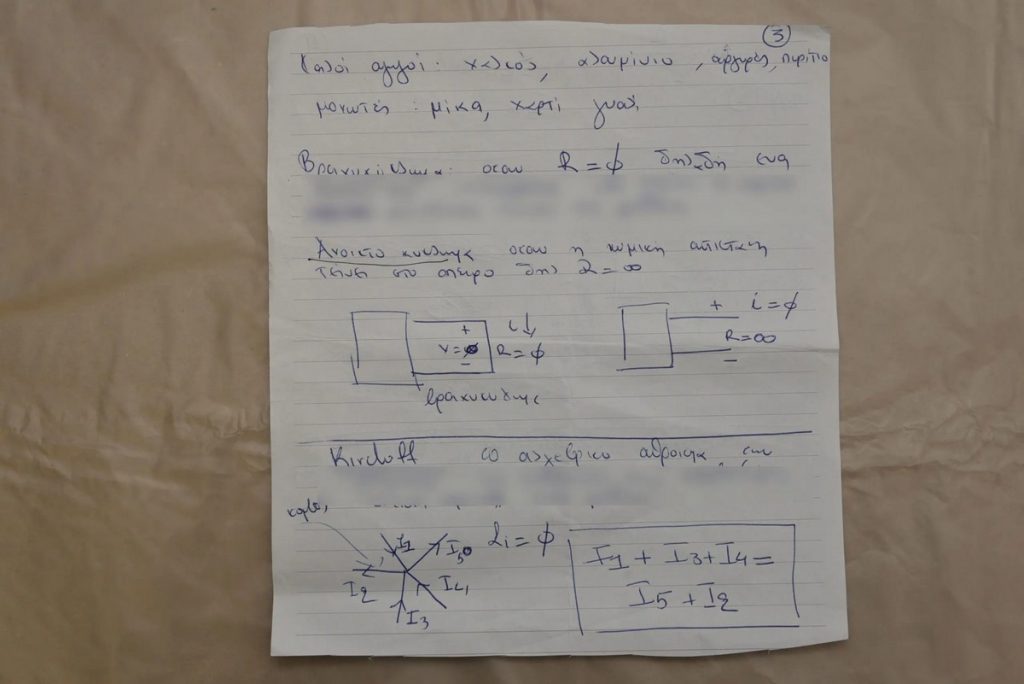 3
Καλοί αγωγοί: χαλκός, αλουμίνιο, άργυρος,
μονωτές: μίκα, χαρτί γυαλί
Βραχυκύκλωμα: οταν R = φ δηλαδη ενα
Ανοικτο κύκλωμα οταν η ωμική αντισταση
τείνει στο απειρο δηλ R = ∞
+ i = φ
+ i
V = φ R = φ
R = ∞
−
−
βραχυκύκλωμα
Kirchoff το αλγεβρικο αθροισμα των
κομβος
I1 I5 Σi = φ
I2 I4
I3
I1 + I3 + I4 =
I5 + I2